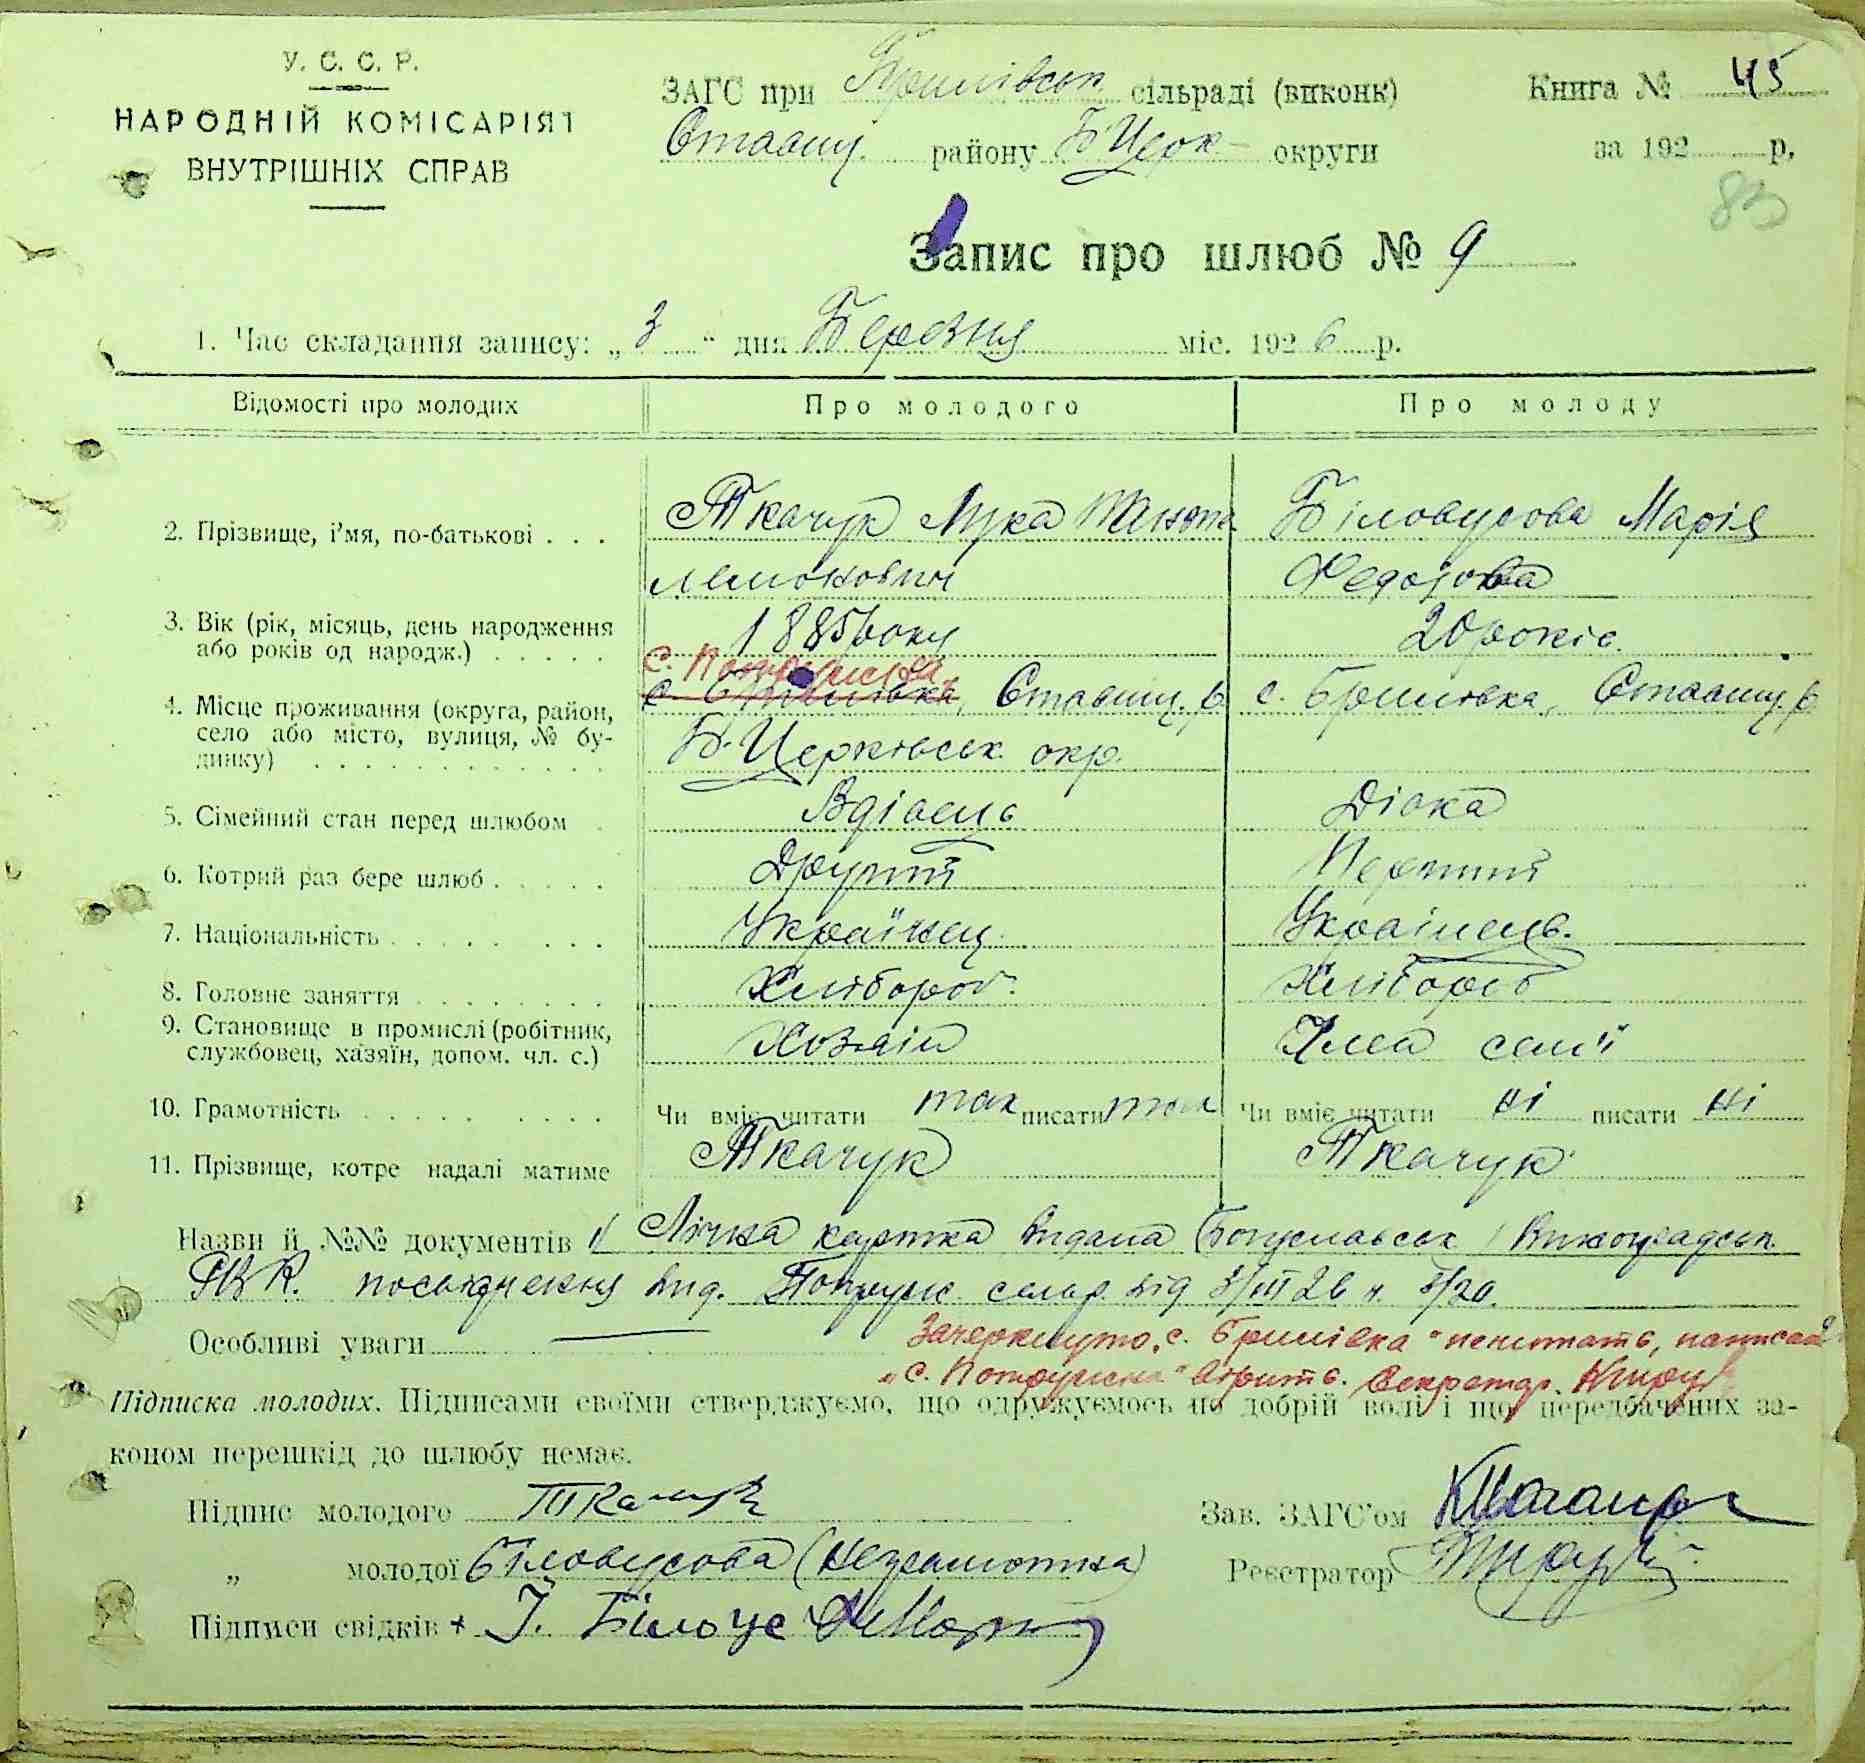 У. С. С. Р.
НАРОДНІЙ КОМІСАРІЯТ
ВНУТРІШНІХ СПРАВ
ЗАГС при Бришівськ. сільраді (виконк)
Ставищ. району Б Церк округи
Книга № 45
за 192 р.
83
Запис про шлюб № 9
1. Час складання запису: „ 3 “ дня Березня міс. 1926 р.
Відомості про молодих Про молодого Про молоду
2. Прізвище, і'мя, по-батькові . . . Ткачук Лука Біловусова Марія
Федорова
3. Вік (рік, місяць, день народження 1885 року 20 років.
або років од народж.) . . . . .
с.
4. Місце проживання (округа, район, Ставищ. р. с. Бришівка, Ставищ. р.
село або місто, вулиця, № бу- Б-Церківськ. окр.
динку) . . . . . . . . . . . .
5. Сімейний стан перед шлюбом . Вдівець Дівка
6. Котрий раз бере шлюб . . . . . Другий Перший
7. Національність . . . . . . . . Українец. Украінець.
8. Головне заняття . . . . . . . . Хлібороб. Хлібороб
9. Становище в промислі (робітник, Хозяін Член семії
службовец, хазяїн, допом. чл. с.)
10. Грамотність . . . . . . . . Чи вміє читати так писати так Чи вміє читати ні писати ні
11. Прізвище, котре надалі матиме Ткачук Ткачук
Назви й №№ документів 1/ Лічна картка видана Богуславськ
РВК. посвідчення вид. сельр. від 3/III 26 н. 5/20.
Особливі уваги Зачеркнуто „с. Бришівка“ нечитать, написано
„с. “ вірить. Секретар.
Підписка молодих. Підписами своїми стверджуємо, що одружуємось по добрій волі і що передбачених за-
коном перешкід до шлюбу немає.
Підпис молодого Ткачук Зав. ЗАГС'ом
„ молодої Біловусова (Неграмотна) Реєстратор
Підписи свідків + І. Білоус